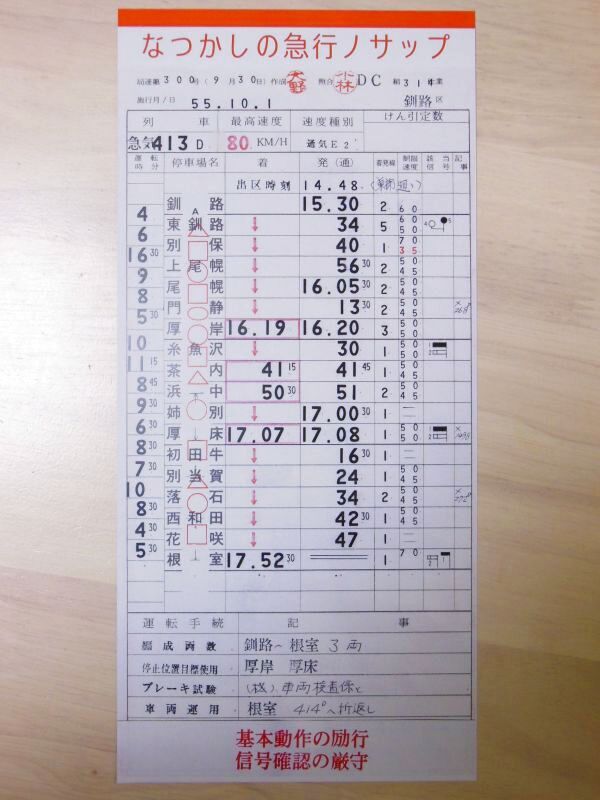 なつかしの急行ノサップ
局達第300号(9月30日)作成 天野 照合 小林 DC 組314行業
施行月/日 55.10.1 釧路区
列車 最高速度 速度種別 けん引定数
急気413D 80 KM/H 通気E2
運転時分 停車場名 着 発(通) 着発線 制限速度 該当信号 記事
出区時刻 14.48
釧路 15.30 2 60
4
東釧路 ↓ 34 5 60 50
6
別保 ↓ 40 1 70 35
16 30
上尾幌 ↓ 56 30 2 50 45
9
尾幌 ↓ 16.05 30 2 50 45
8
門静 ↓ 13 30 2 50 45
5 30
厚岸 16.19 16.20 3 50 50
10
糸魚沢 ↓ 30 1 50 45
11 15
茶内 41 15 41 45 1 50 45
8 45
浜中 50 30 51 2 50 45
9 30
姉別 ↓ 17.00 30 1 二
6 30
厚床 17.07 17.08 1 50 50
8 30
初田牛 ↓ 16 30 1 二
7 30
別当賀 ↓ 24 1 50 45
10
落石 ↓ 34 2 50 45
8 30
西和田 ↓ 42 30 1 50 45
4 30
花咲 ↓ 47 1 二
5 30
根室 17.52 30 1 70
運転手続 記事
編成両数 釧路〜根室 3両
停止位置目標使用 厚岸 厚床
ブレーキ試験 車両検査係と
車両運用 根室 414Dへ折返し
基本動作の励行
信号確認の厳守